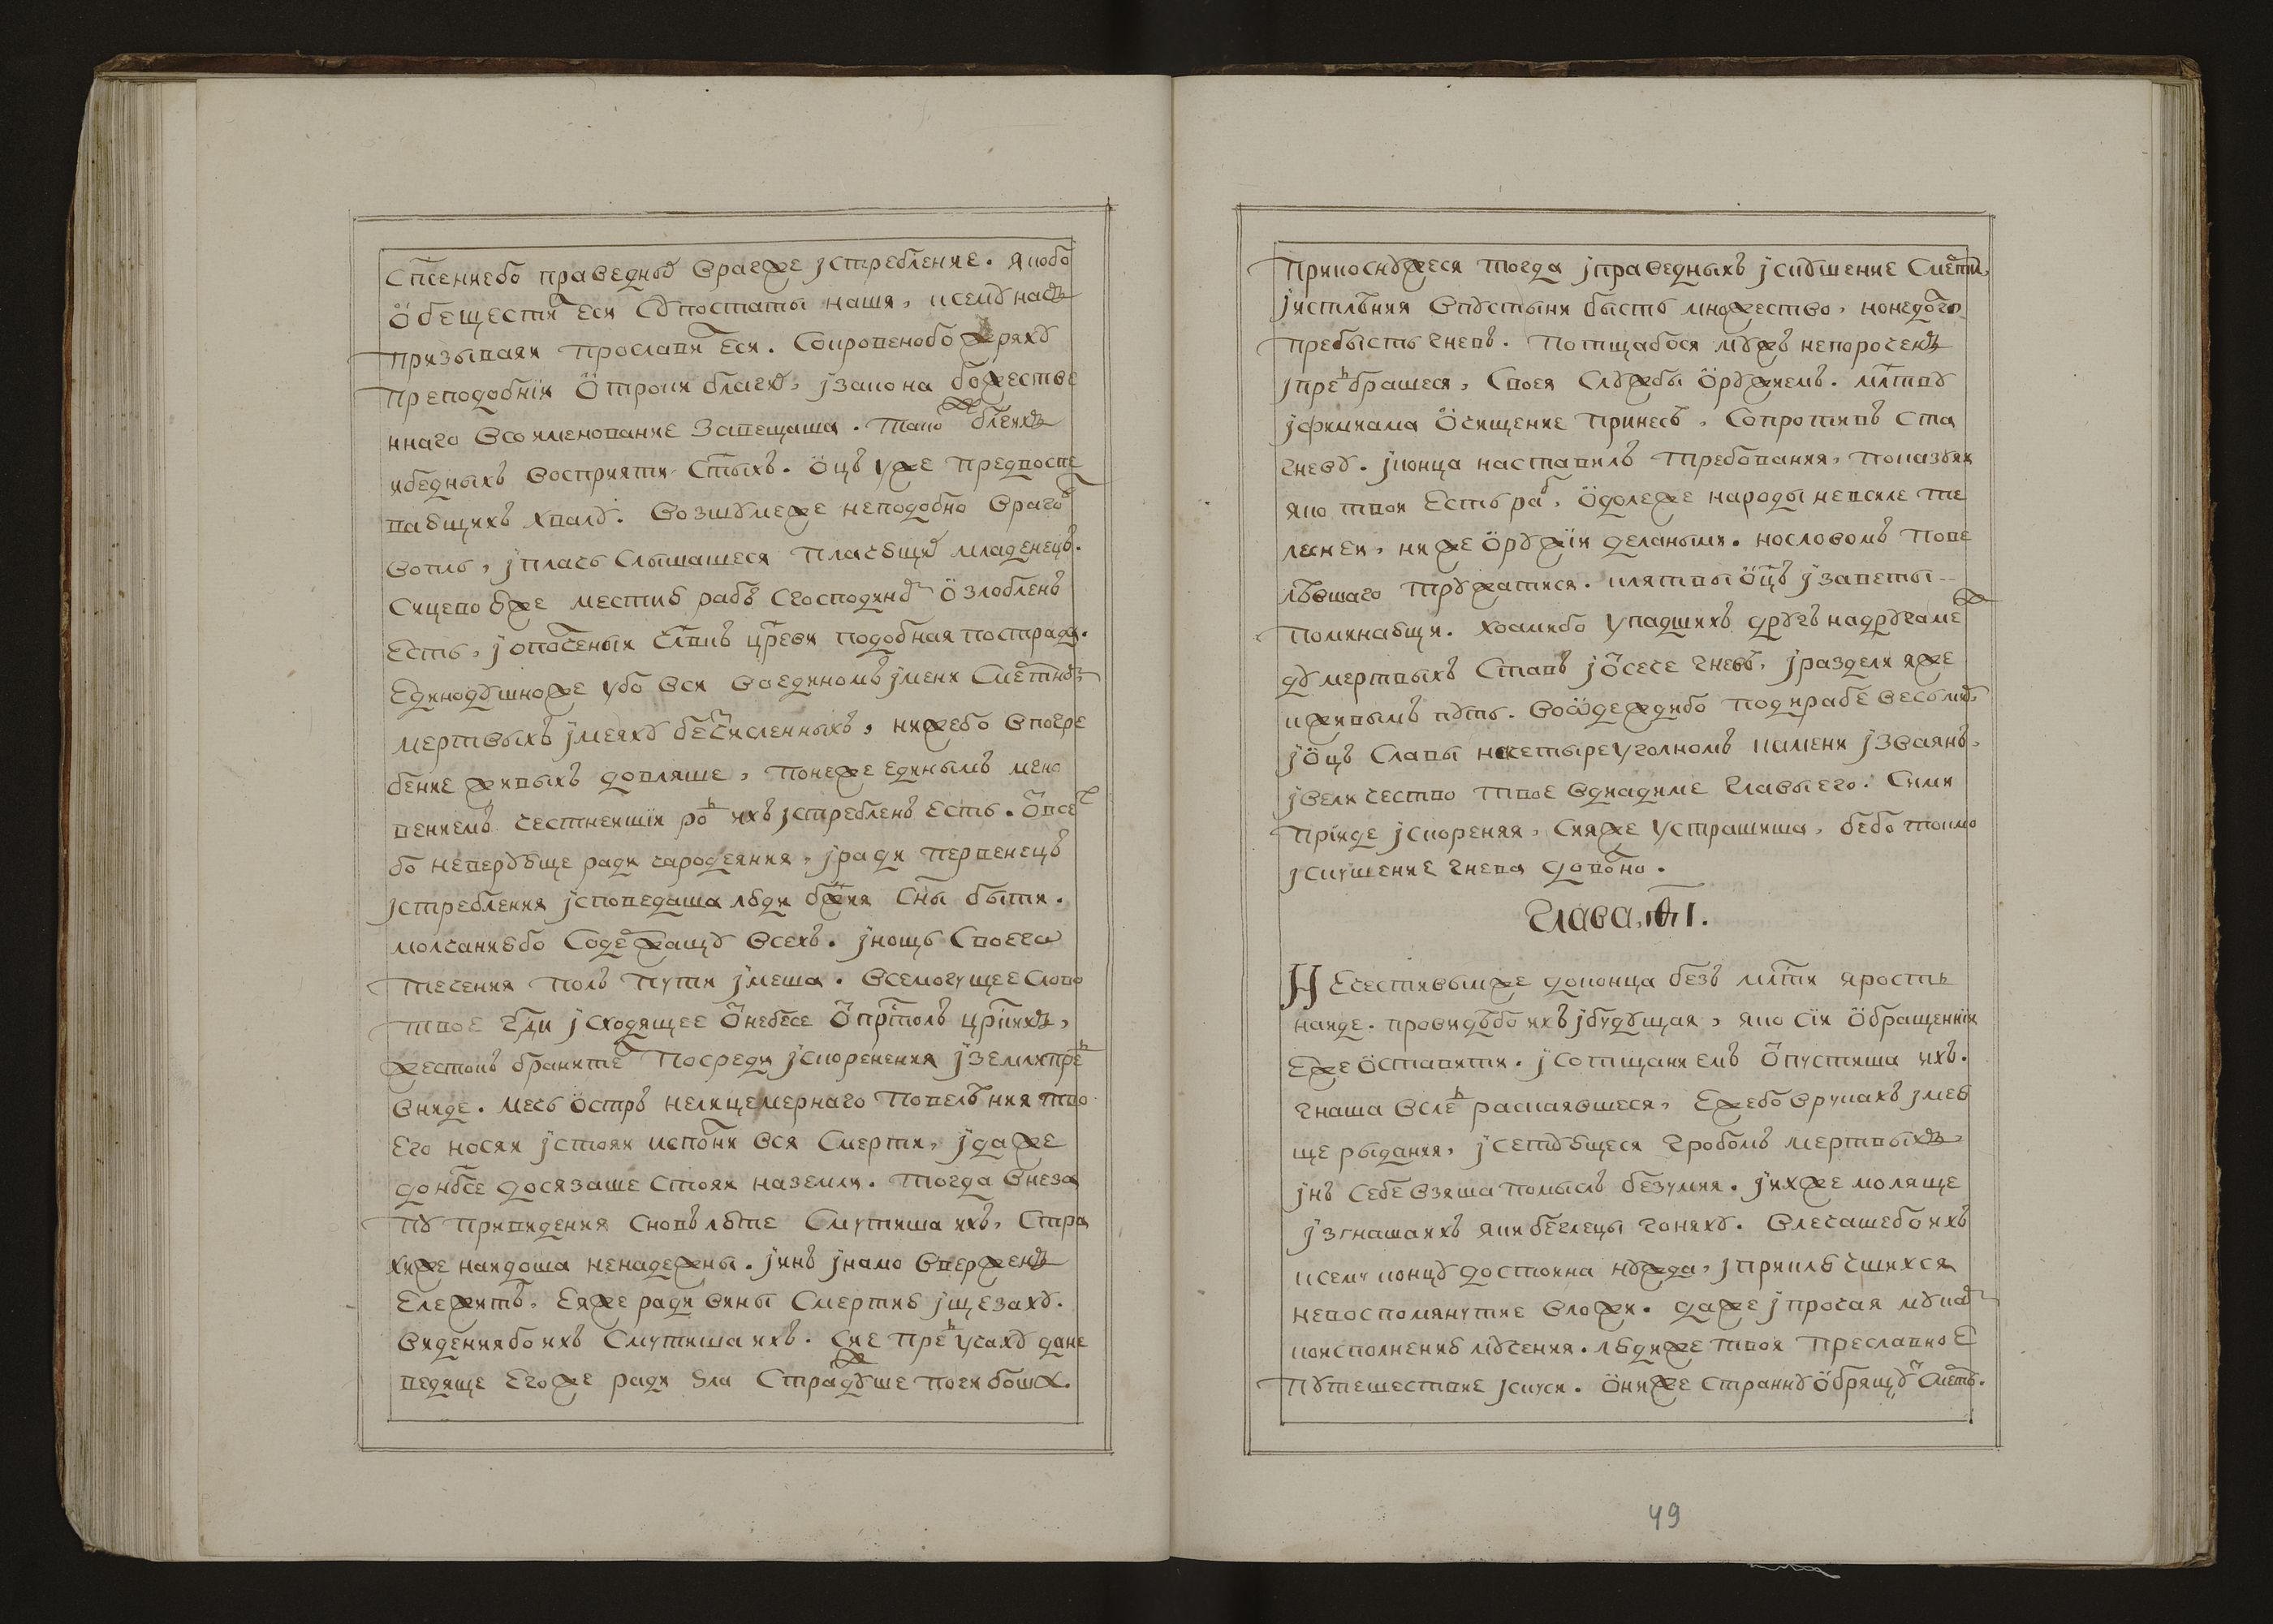 Сп҃сениебо праведныⷯ враже істребление. якобо
ѻбещестиⷧ еси сꙋпостаты наша, исемꙋ насъ
призываяи прославиⷧ еси. Сокровенобо жряхꙋ
преподобніи ѻтроки благиⷯ, ізакона божестве
ннаго всоименование завещаша. Тако блгихъ
ибедныхъ восприяти ст҃ыхъ. ѻц҃ъ уже предвоспе
вающихъ хвалꙋ. Возшꙋмеже неподобно враго
вопль, іплачь слышашеся плачющиⷯ младенецъ.
Сицевоюже местию рабъ сгосподиноⷨ ѻзлобленъ
есть, іополченыи Єл҃вкъ цр҃еви подобная пострада.
Единодꙋшноже убо вси воединомъ імени смеⷬтноⷨ
мертвыхъ імеяхꙋ беⷥчисленныхъ, нижебо впогре
бение живыхъ довляше, понеже единымъ мгно
вениемъ честнеишіи роⷣ ихъ істребленъ есть. ѻвсеⷯ
бо неверꙋюще ради чародеяния, іради первенецъ
істребления ісповедаша люди бж҃ия сн҃ы быти.
молчаниюбо содеⷬжащꙋ всехъ. інощь своего
течения полъ пути імеша. всемогущее слово
твое гд҃и ісходящее ѿнебесе ѿпрⷭтолъ црⷭкихъ,
жестокъ бранитеⷧ посреди іскоренения іземлипреⷣ
вниде. мечь ѻстръ нелицемернаго повелѣния тво
его носяи істояи исполни вся смерти, ідаже
донб҃се досязаше стояи наземли. тогда внеза
пꙋ привидения сновъ люте смутиша ихъ, стра
хиже наидоша ненадежны. інъ інамо вверженъ
Ележитъ, Еяже ради вины смертию іщезахꙋ.
видениябо ихъ смутиша ихъ. Сие преⷣусахꙋ дане
ведяще егоже ради зла страждꙋще погибоша.
Прикоснꙋжеся тогда іправедныхъ іскꙋшение смеⷬти,
іистлѣния впꙋстыни бысть множество, нонедоⷧго
пребысть гневъ. Потщабося мꙋжъ непороченъ
іпреⷣбрашеся, своея слꙋжбы ѻрꙋжиемъ. мл҃твꙋ
іфимиама ѻчищение принесъ, сопротивъ ста
гневꙋ. іконца наставилъ требования, показꙋя
яко твои есть раⷠ, ѻдолеже народы невсиле те
леснеи, ниже ѻрꙋжіи делаными. нословомъ пове
лѣвшаго трꙋжатися. клятвы ѻц҃ъ ізаветы
поминающи. коликобо упадшихъ дрꙋгъ надрꙋгамеⷤ
дꙋмертвыхъ ставъ іѿсече гневъ, іраздели яже
иживымъ пꙋть. воѻдеждибо подирабе весьмиⷬ,
іѻц҃ъ славы начетыреуголномъ камени ізваянъ.
івеличество твое вдиадиме главы его. Сими
прїиде іскореняя, сияже устрашиша, бебо токмо
іскушение гнева довоⷧно.
Глава, ѳ҃і.
Нечестивымже доконца безъ млⷭти ярость
наиде. провидѣбо ихъ ібꙋдꙋщая, яко сїи ѻбращенніи
еже ѻставити. ісотщаниемъ ѿпустиша ихъ.
гнаша вслеⷣ раскаявшеся, ежебо врукахъ імею
ще рыдания, ісетꙋющеся гробомъ мертвыхъ,
інъ себе взяша помыслъ безумия. іихже моляще
ізгнашаихъ яки беглецы гоняхꙋ. влечашебо ихъ
ксему концꙋ достоина нꙋжда, іприключшихся
невоспомянутие вложи. даже іпрочая мꙋкаⷨ
коисполнению мꙋчения. людиже твоя преславное
пꙋтешествие іскуси. ѻниже страннꙋ ѻбрящꙋⷮ смеⷬть.
49